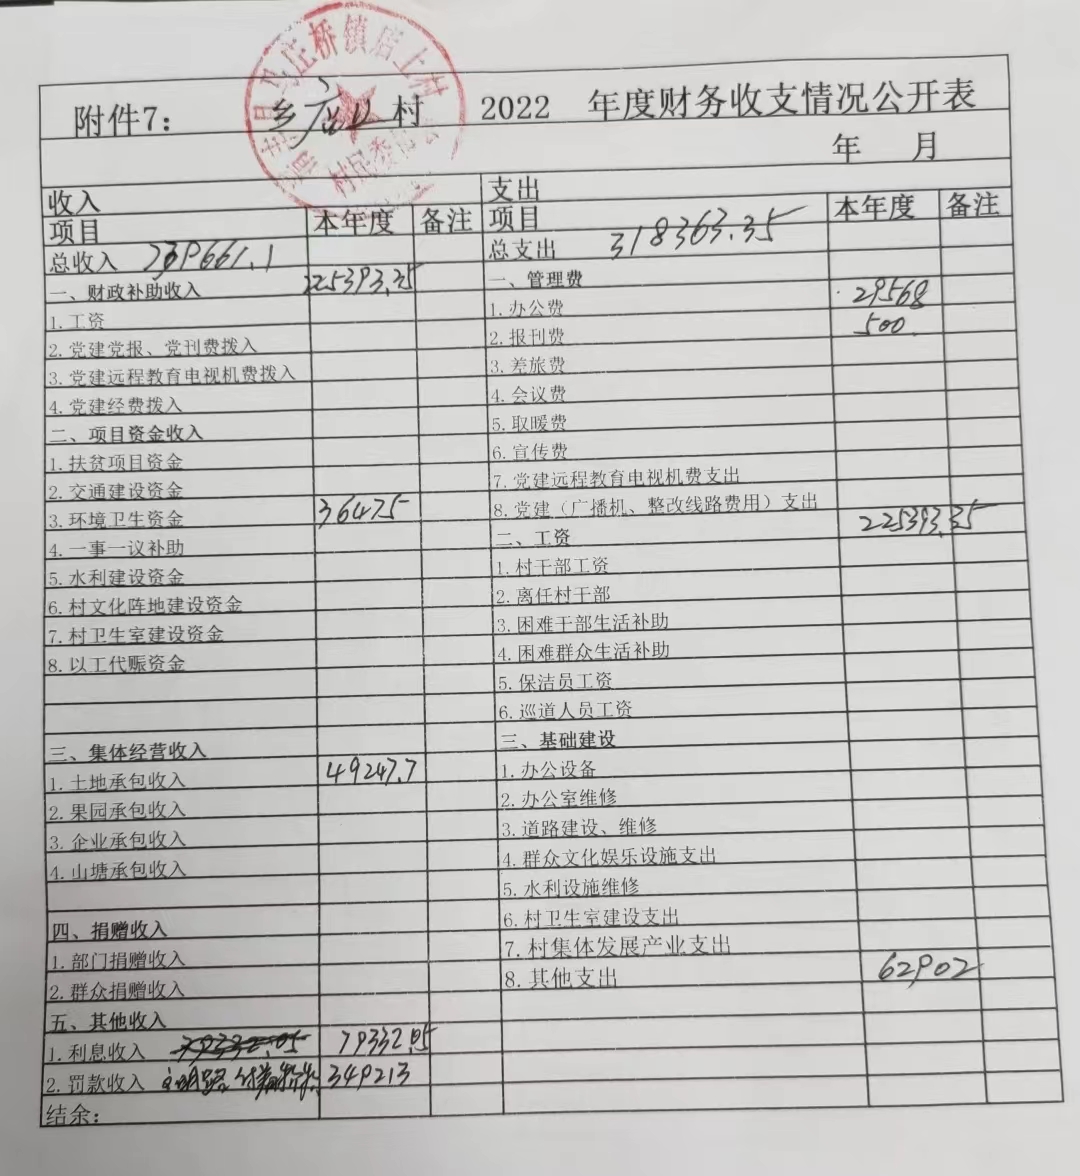 马庄桥镇店上村
村民委员会
附件7： 乡店上村 2022 年度财务收支情况公开表
年 月
收入 支出
项目 本年度 备注 项目 本年度 备注
总收入 739661.1 总支出 318363.35
一、财政补助收入 225393.35 一、管理费
1.工资 1.办公费 29568
2.党建党报、党刊费拨入 2.报刊费 500
3.党建远程教育电视机费拨入 3.差旅费
4.党建经费拨入 4.会议费
二、项目资金收入 5.取暖费
1.扶贫项目资金 6.宣传费
2.交通建设资金 7.党建远程教育电视机费支出
3.环境卫生资金 36475 8.党建（广播机、整改线路费用）支出
4.一事一议补助 二、工资 225393.35
5.水利建设资金 1.村干部工资
6.村文化阵地建设资金 2.离任村干部
7.村卫生室建设资金 3.困难干部生活补助
8.以工代赈资金 4.困难群众生活补助
5.保洁员工资
6.巡道人员工资
三、集体经营收入 三、基础建设
1.土地承包收入 49247.7 1.办公设备
2.果园承包收入 2.办公室维修
3.企业承包收入 3.道路建设、维修
4.山塘承包收入 4.群众文化娱乐设施支出
5.水利设施维修
四、捐赠收入 6.村卫生室建设支出
1.部门捐赠收入 7.村集体发展产业支出
2.群众捐赠收入 8.其他支出 62902
五、其他收入
1.利息收入 79332.05 79332.05
2.罚款收入 349213
结余：